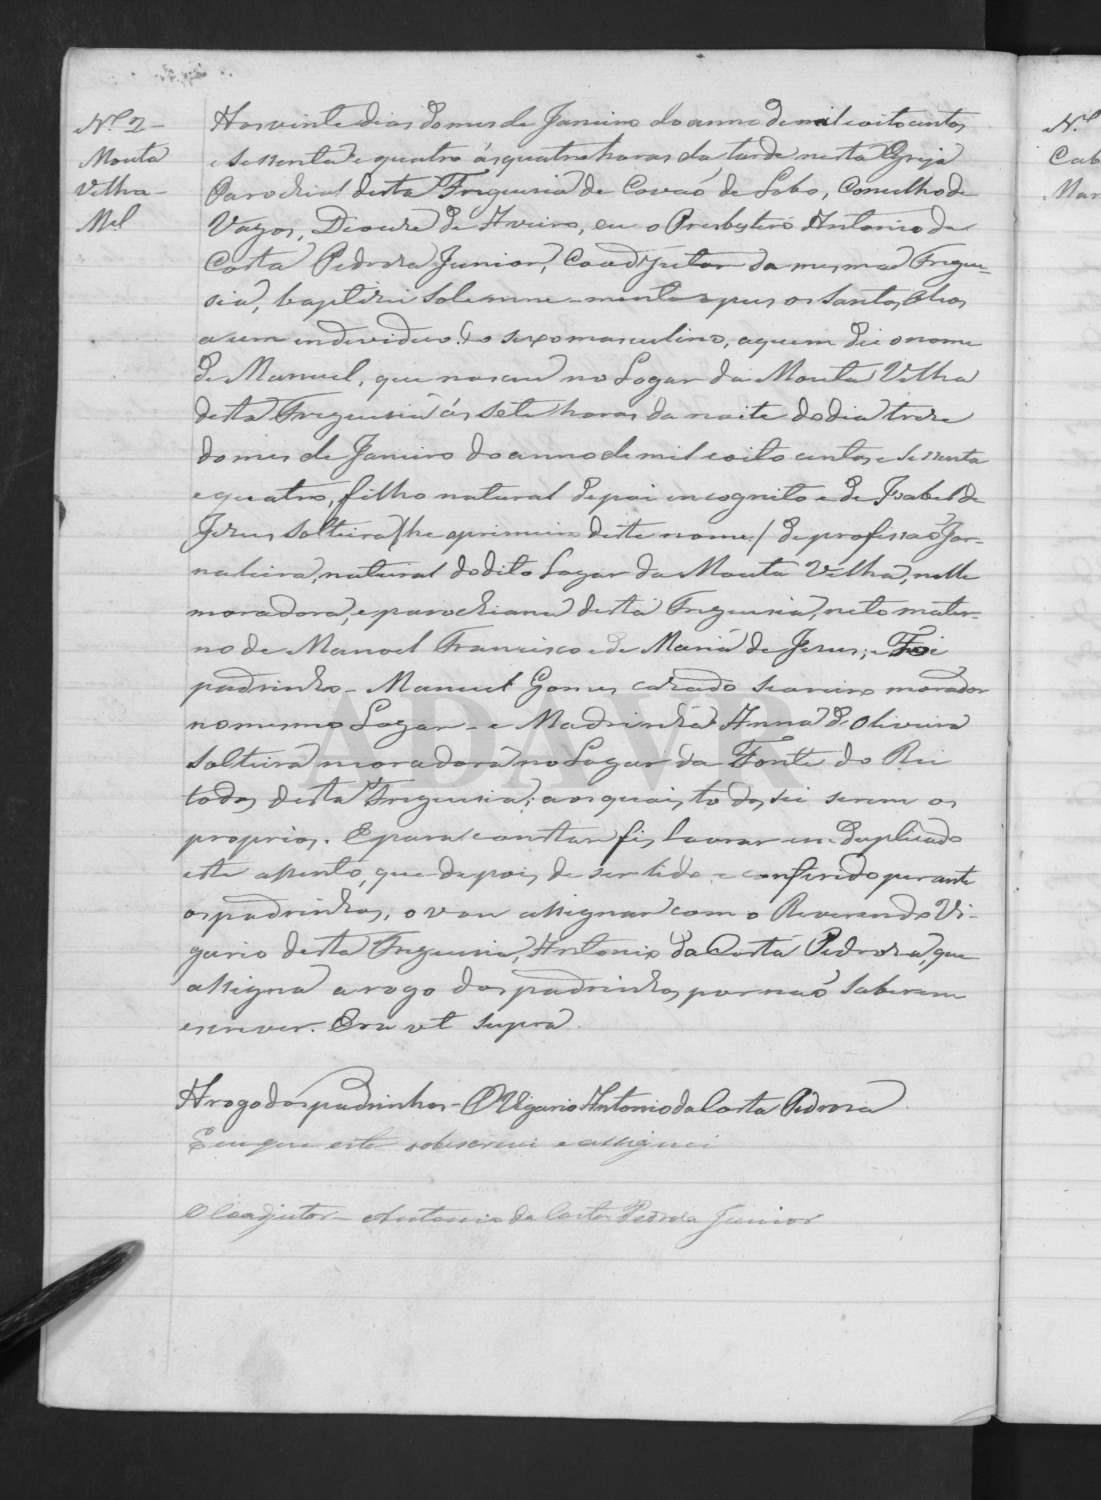 Nº 2 -
Mouta
Velha -
Mel
Aos vinte dias do mes de Janeiro do anno de mil e oito centos
e sessenta e quatro ás quatro horas da tarde nesta Egreja
Parochial desta Freguesia de Covaõ do Lobo, Concelho de
Vagos, Diocese de Aveiro, eu o Presbytero Antonio da
Costa Pedroza Junior, Coadjutor da mesma Fregue-
sia, baptizei solemne-mente e pus os Santos Oleos
a um individuo do sexo masculino, a quem dei o nome
de Manuel, que nasceu no Logar da Mouta Velha
desta Freguesia ás sete horas da noite do dia treze
do mes de Janeiro do anno de mil e oito centos e sessenta
e quatro, filho natural de pai incognito e de Isabel de
Jezus solteira /he o primeiro deste nome/ de profissaõ Jor-
naleira, natural do dito Logar da Mouta Velha, nelle
moradora, e parochiana desta Freguesia, neto mater-
no de Manoel Francisco e de Maria de Jezus; Foi
padrinho - Manuel Gomes cazado seareiro morador
no mesmo Logar - e Madrinha Anna de Oliveira
solteira moradora no Logar da Fonte do Rei
todos desta Freguesia; aos quais todos sei serem os
proprios. E para constar fis lavrar em duplicado
este assento, que depois de ser lido e conferido perante
os padrinhos, o vou assignar com o Reverendo Vi-
gario desta Freguesia, Antonio da Costa Pedroza, que
assigna a rogo dos padrinhos por naõ saberem
escrever. Era ut supra.
A rogo dos padrinhos - O Vigario Antonio da Costa Pedroza
E eu que este sobescrevi e assignei
O Coadjutor - Antonio da Costa Pedroza Junior
ADAVR
Nº
Cab
Mar